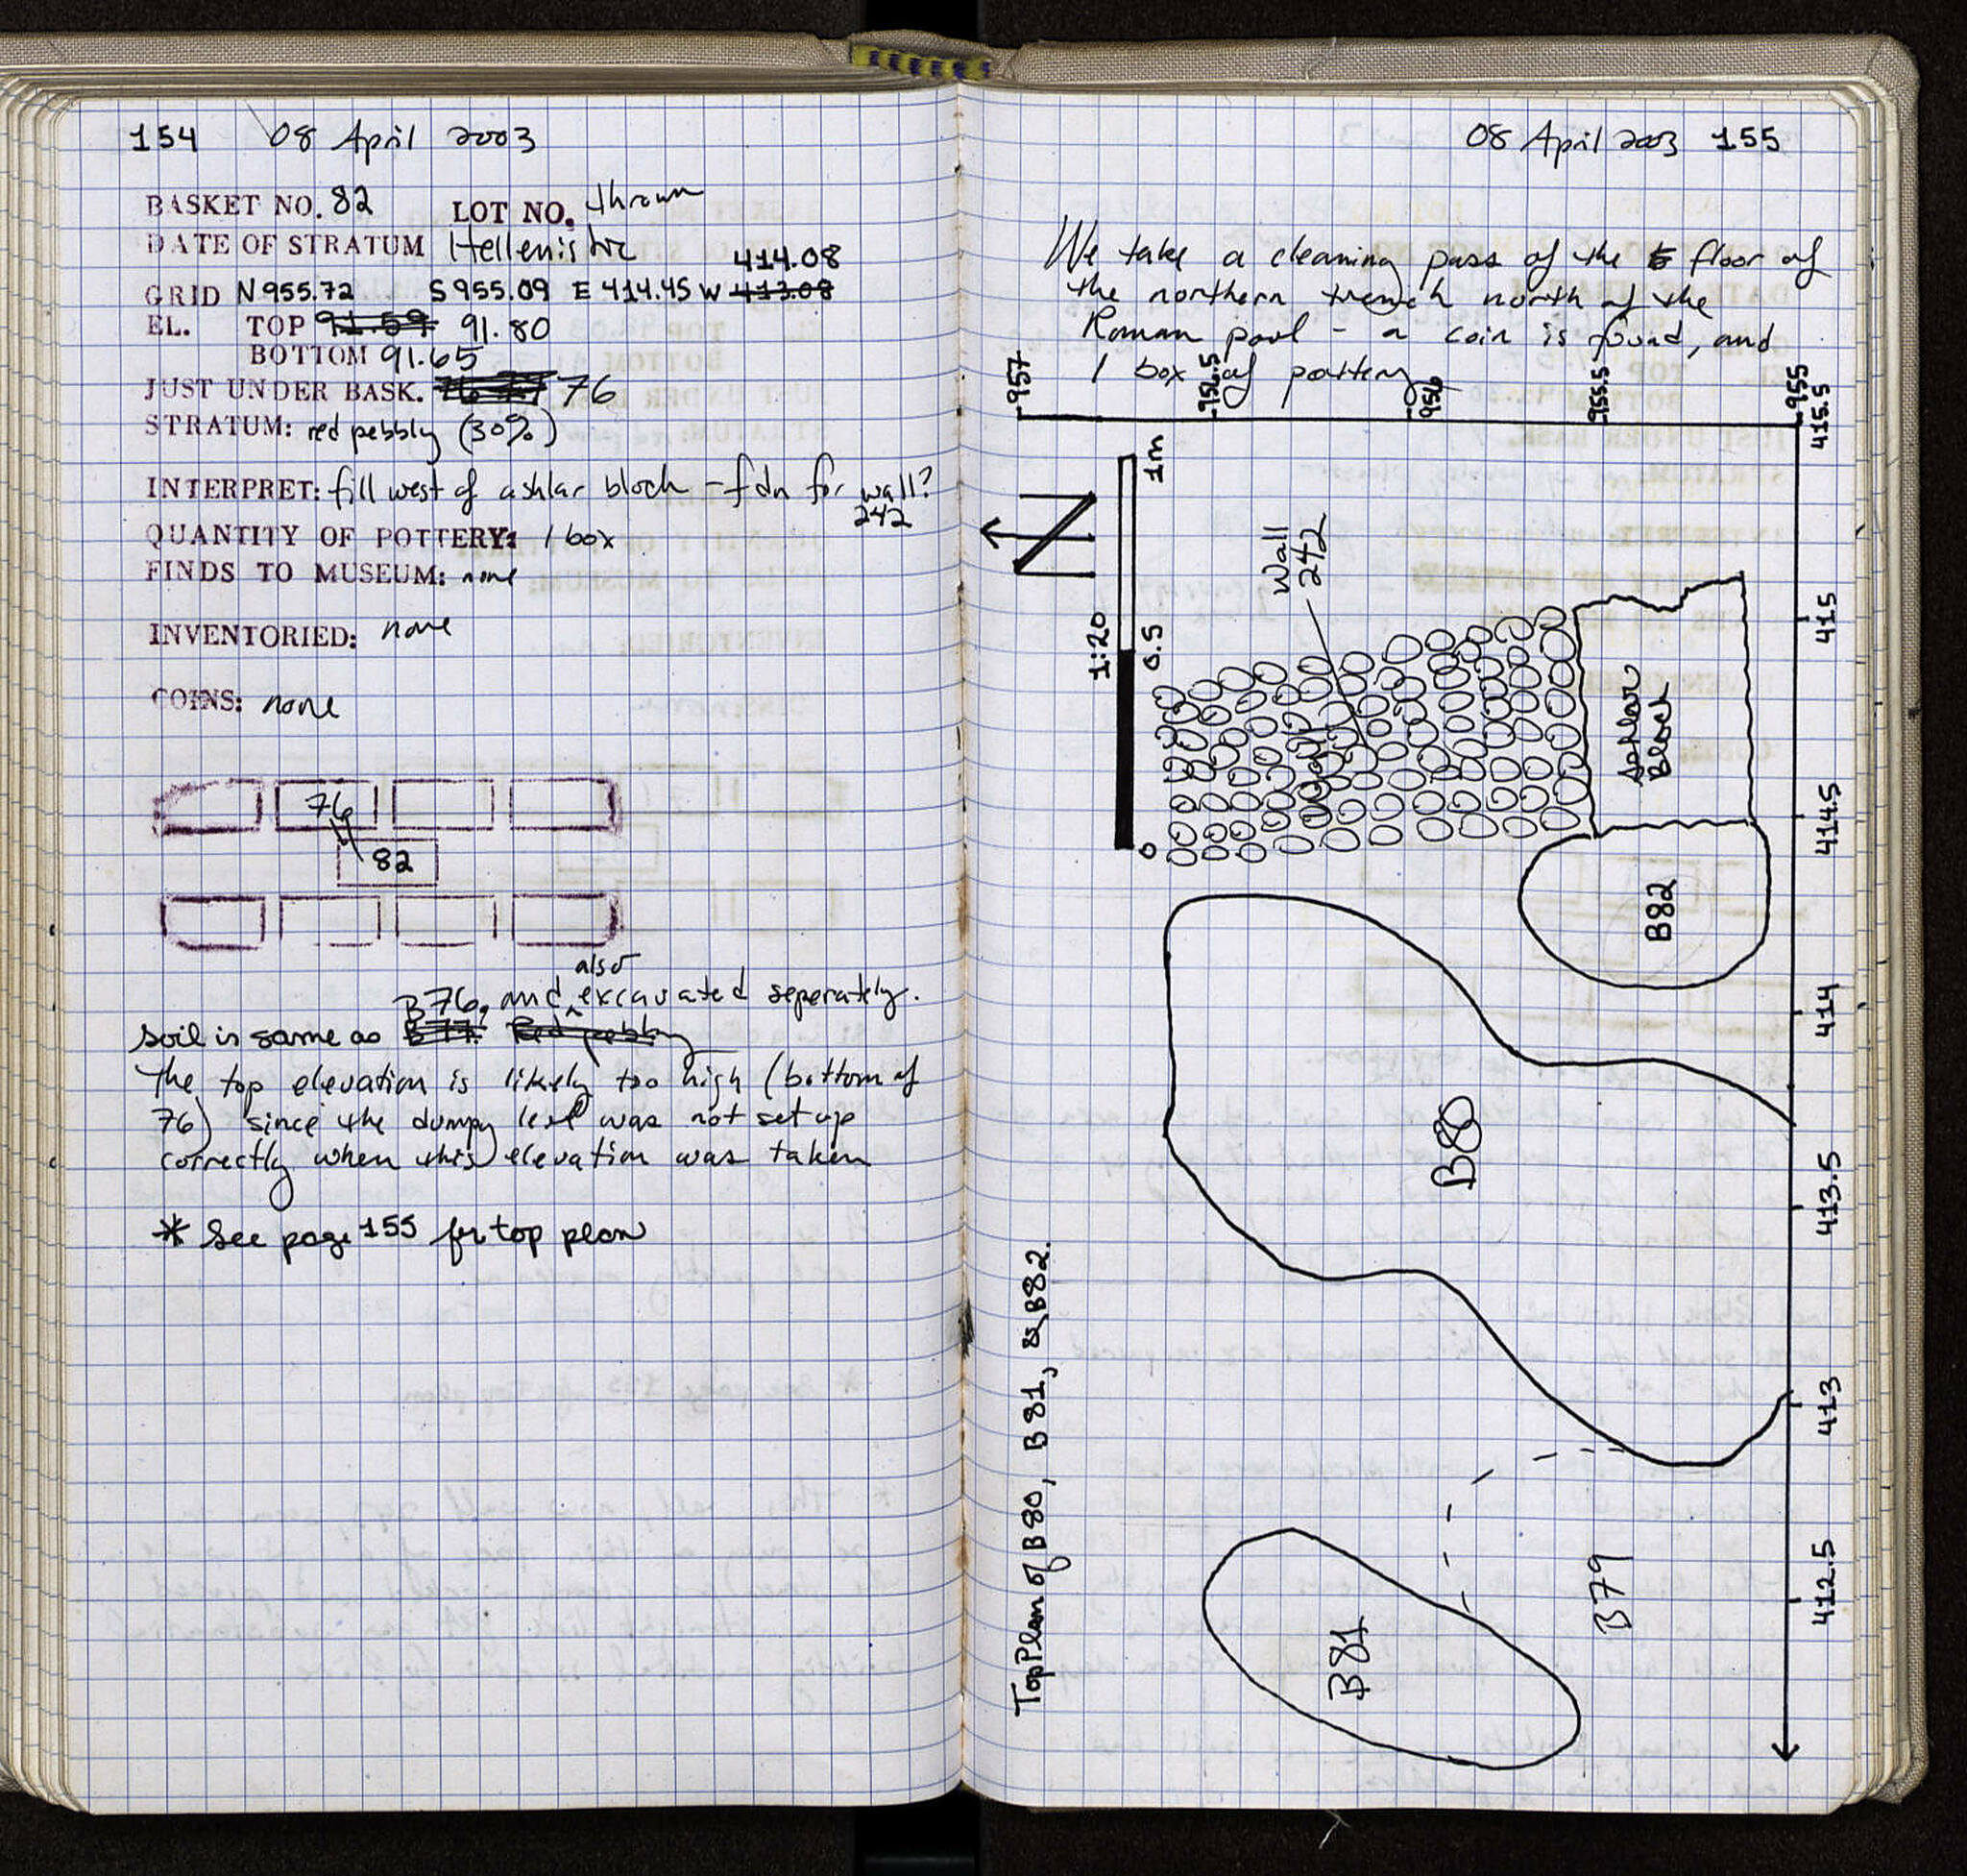 154 08 April 2003
BASKET NO. 82 LOT NO. thrown
DATE OF STRATUM Hellenistic
414.08
GRID N 955.72 S 955.09 E 414.45 W 413.08
EL. TOP 91.59 91.80
BOTTOM 91.65
JUST UNDER BASK. 76
STRATUM: red pebbly (30%)
INTERPRET: fill west of ashlar block - fdn for wall?
242
QUANTITY OF POTTERY: 1 box
FINDS TO MUSEUM: none
INVENTORIED: none
COINS: none
76
82
also
B76, and ^ excavated seperately.
soil is same as B77. Red pebbly
The top elevation is likely too high (bottom of
76) since the dumpy level was not set up
correctly when this elevation was taken
* See page 155 for top plan
08 April 2003 155
We take a cleaning pass of the floor of
the northern trench north of the
Roman pool - a coin is found, and
1 box of pottery
957
956.5
956
955.5
955
415.5
415
414.5
414
413.5
413
412.5
N
1:20
0
0.5
1m
Wall
242
Ashlar
Block
B82
B80
B81
B79
Top Plan of B80, B81, & B82.